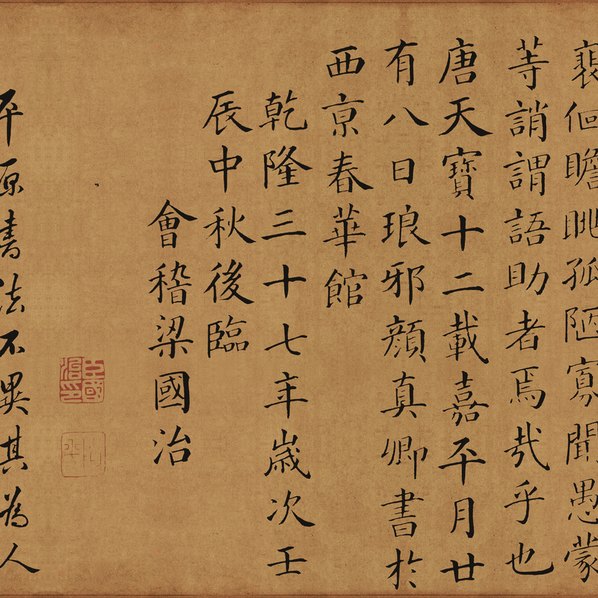 裴佪瞻眺孤陋寡聞愚蒙
等誚謂語助者焉哉乎也
唐天寶十二載嘉平月廿
有八日琅邪顏真卿書於
西京春華館
乾隆三十七年歲次壬
辰中秋後臨
會稽梁國治
臣國治印
平原書法不異其為人